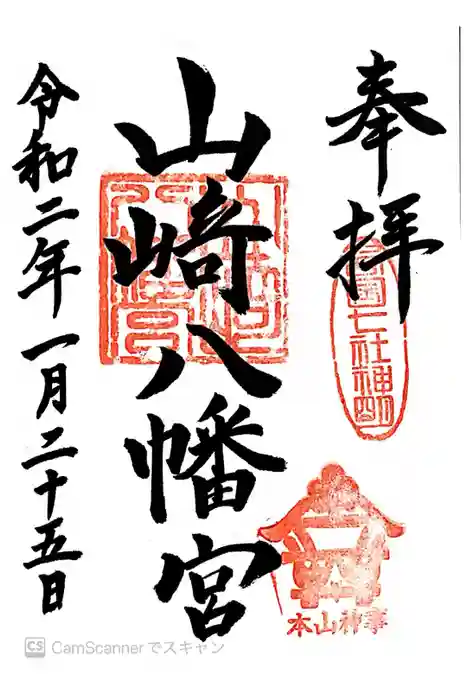 奉拝
七社神明
山崎八幡宮
本山神事
令和二年一月二十五日
CS CamScannerでスキャン